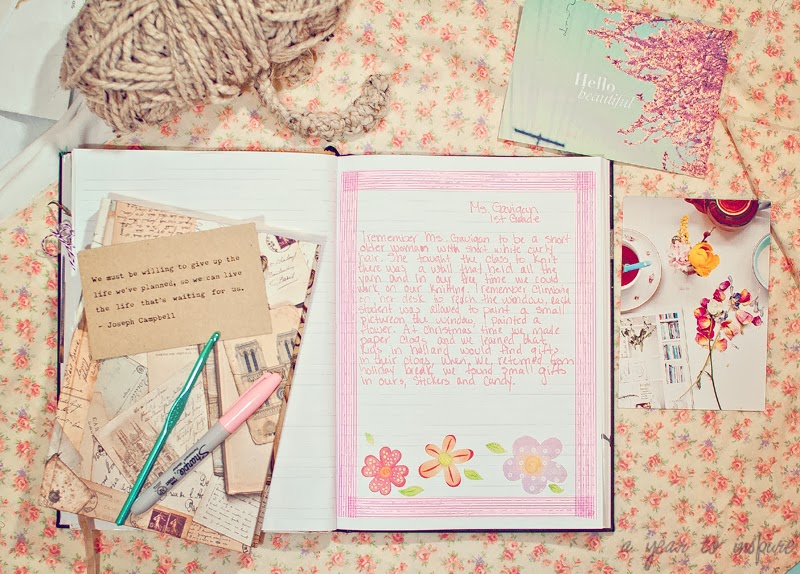 Hello
beautiful
We must be willing to give up the
life we've planned, so we can live
the life that's waiting for us.
- Joseph Campbell
Sharpie
Ms. Gavigan
1st Grade
I remember Ms. Gavigan to be a short
older woman with short white curly
hair. She taught the class to knit
there was a wall that held all the
yarn and in our free time we could
work on our knitting. I remember climbing
on her desk to reach the window, each
student was allowed to paint a small
picture on the window. I painted a
flower. At Christmas time we made
paper clogs and we learned that
kids in holland would find gifts
in their clogs. When we returned from
holiday break we found small gifts
in ours, stickers and candy.
a year to inspire